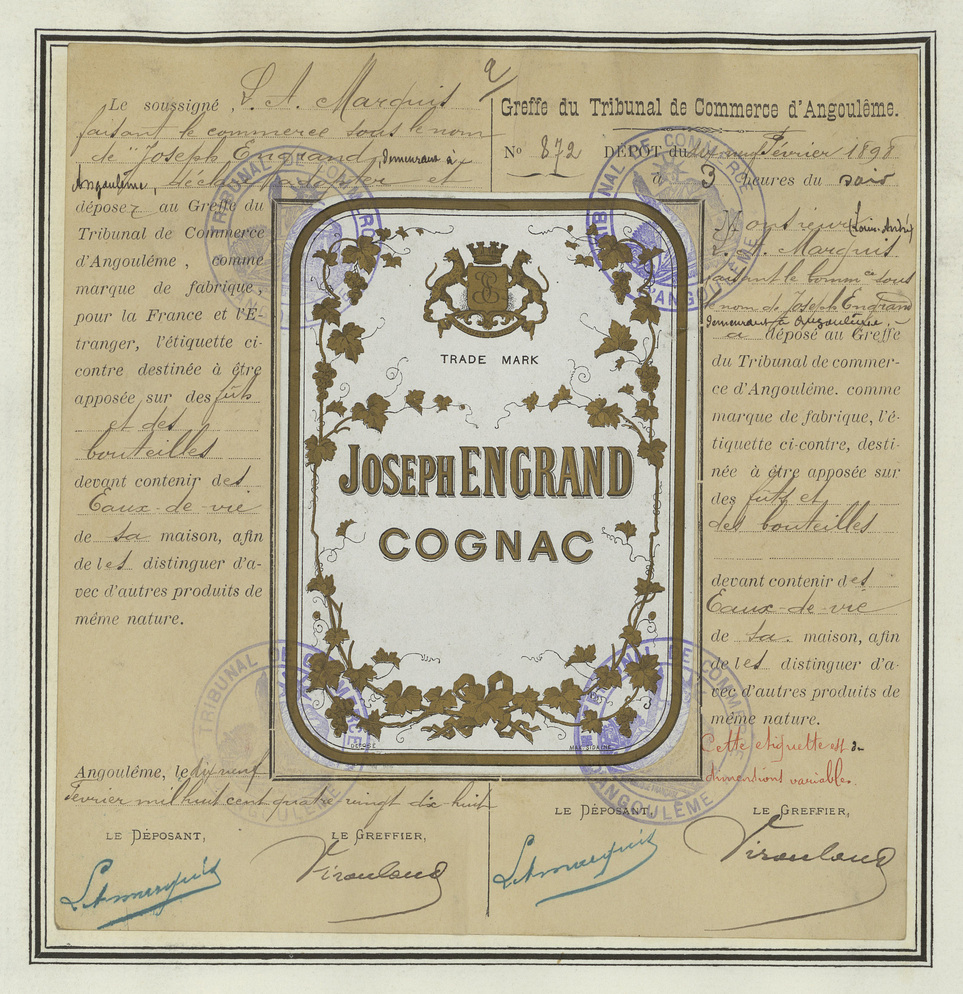 Le soussigné, L. A. Marquis
faisant le commerce sous le nom
de "Joseph Engrand, demeurant à
Angoulême, déclare et
déposez au Greffe du
Tribunal de Commerce
d'Angoulême, comme
marque de fabrique,
pour la France et l'É-
tranger, l'étiquette ci-
contre destinée à être
apposée sur des fûts
et des
bouteilles
devant contenir des
Eaux-de-vie
de sa maison, afin
de les distinguer d'a-
vec d'autres produits de
même nature.
Angoulême, le dix neuf
Février mil huit cent quatre vingt dix huit
LE DÉPOSANT,
LE GREFFIER,
LAmarquis
Virouland
TRADE MARK
JOSEPH ENGRAND
COGNAC
DÉPOSÉ
Greffe du Tribunal de Commerce d'Angoulême.
No 872 DÉPÔT du dix neuf Février 1898
à 3 heures du soir
Monsieur (Louis André)
L. A. Marquis
faisant le Commce sous
le nom de Joseph Engrand
demeurant à Angoulême,
a déposé au Greffe
du Tribunal de commer-
ce d'Angoulême. comme
marque de fabrique, l'é-
tiquette ci-contre, desti-
née à être apposée sur
des fûts et
des bouteilles
devant contenir des
Eaux-de-vie
de sa maison, afin
de les distinguer d'a-
vec d'autres produits de
même nature.
Cette etiquette est de
dimensions variables.
LE DÉPOSANT,
LE GREFFIER,
LAmarquis
Virouland
TRIBUNAL DE COMMERCE
D'ANGOULÊME
TRIBUNAL DE COMMERCE
D'ANGOULÊME
TRIBUNAL DE COMMERCE
D'ANGOULÊME
TRIBUNAL DE COMMERCE
D'ANGOULÊME